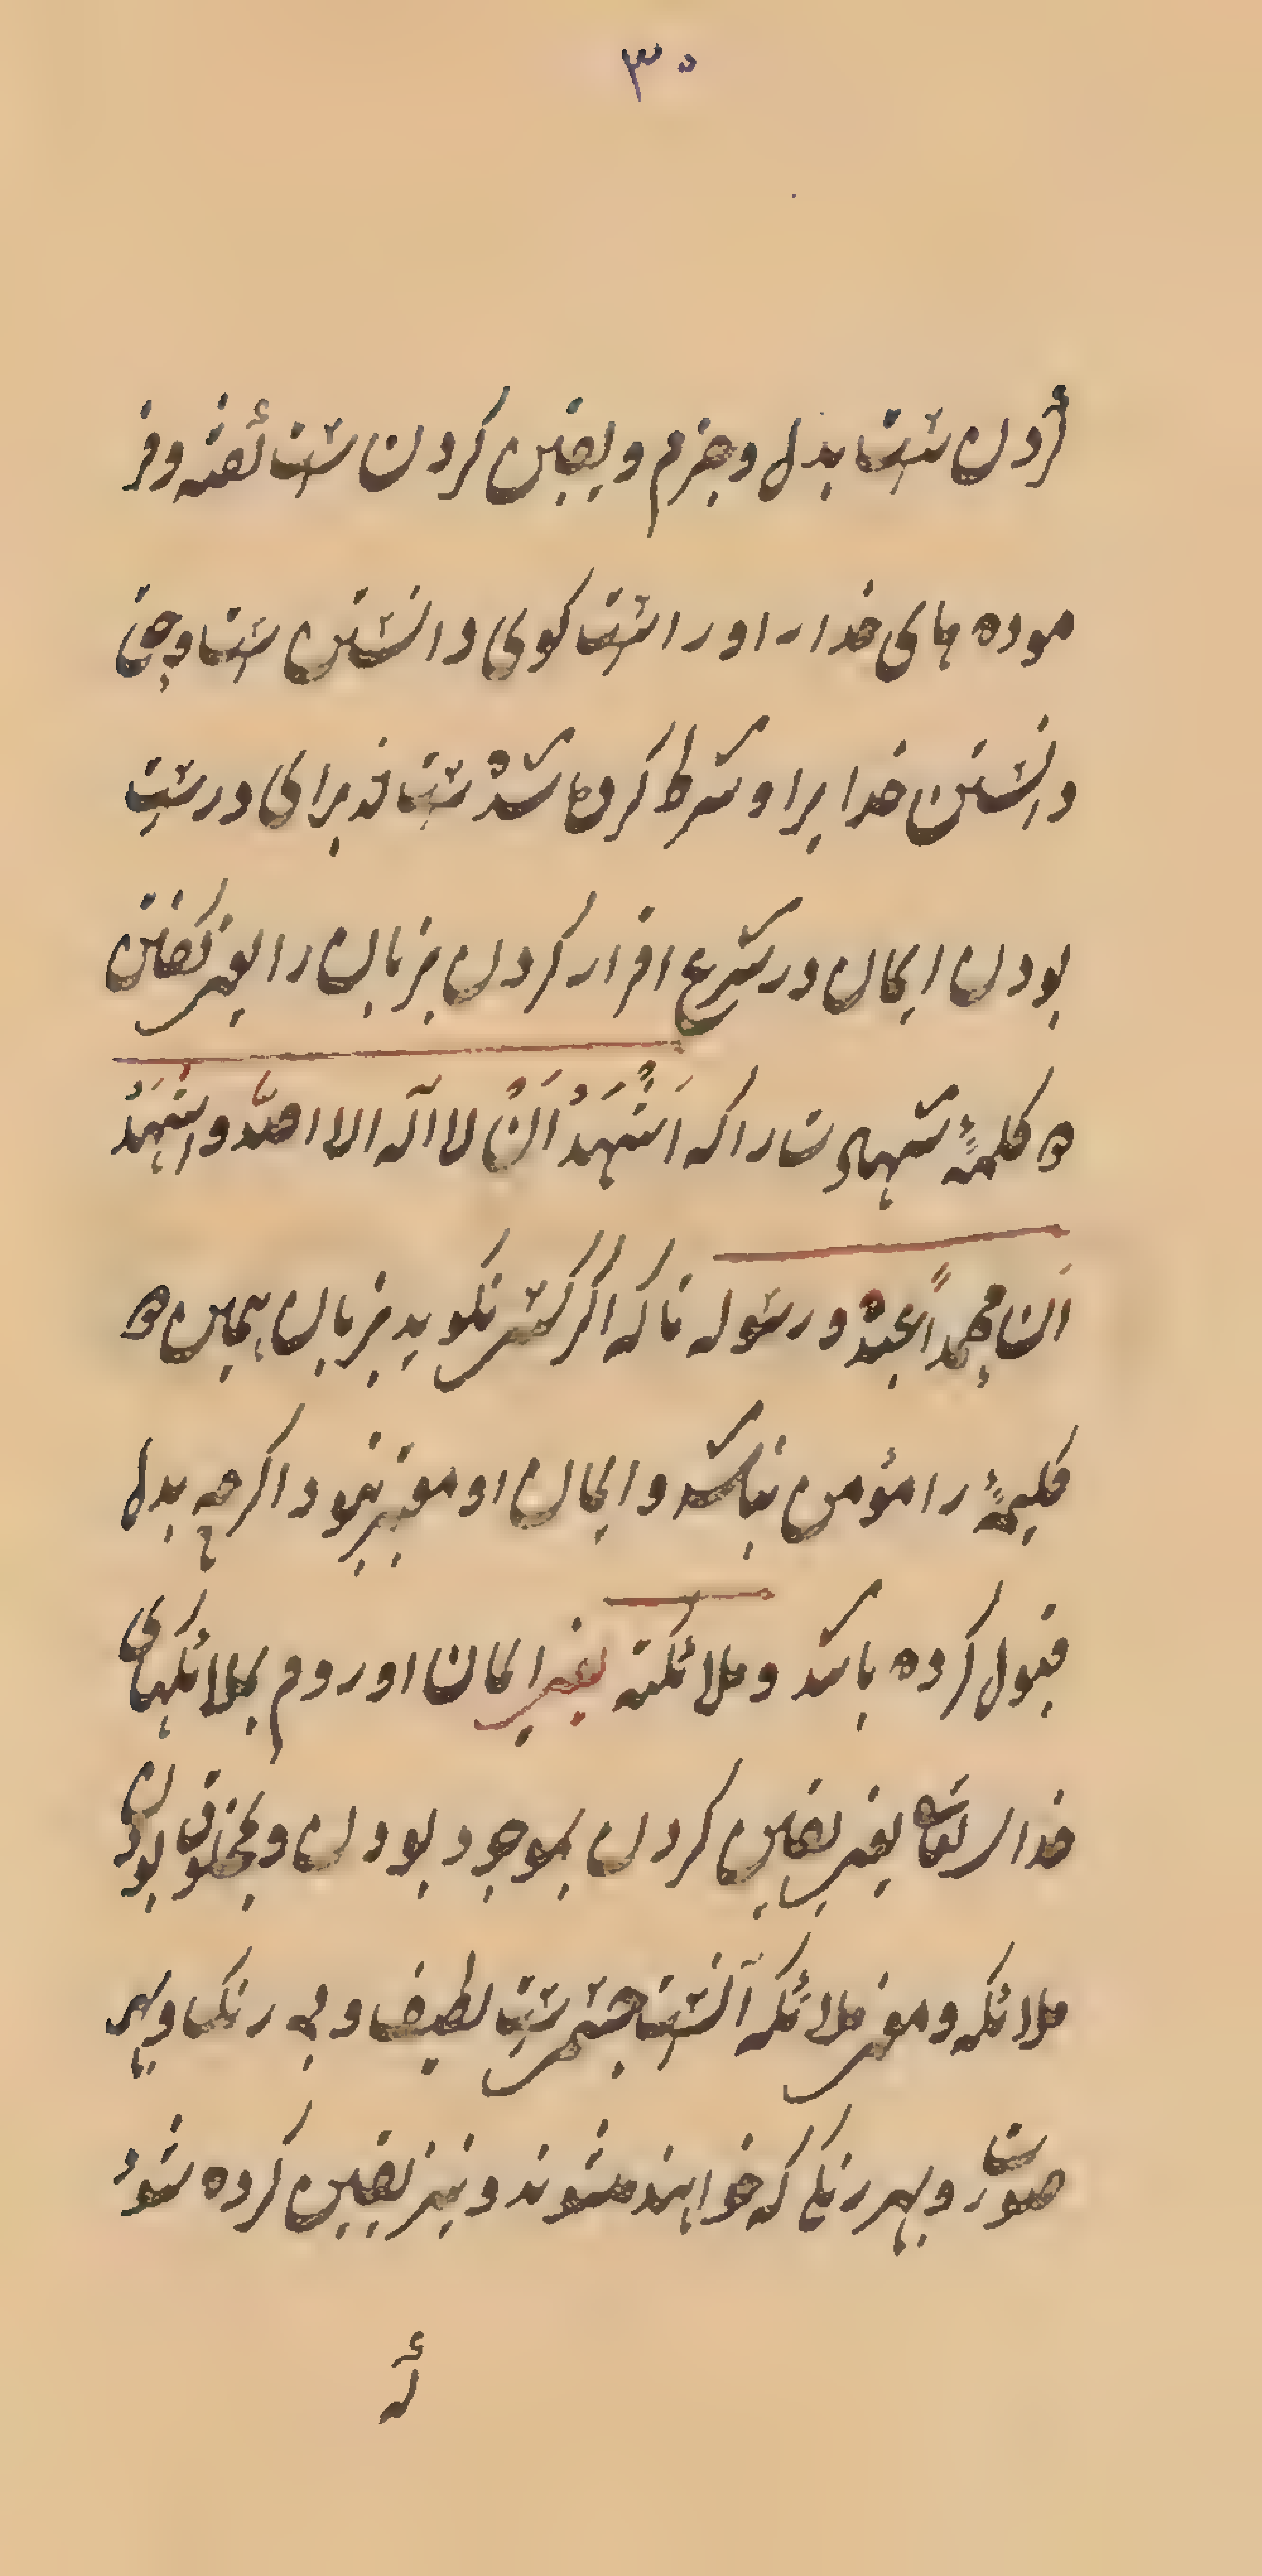 ۳۰
کردن ست بدل و جزم و یقین کردن ست گفته و فر
موده های خدا را و راست کوی دانستن ست و حق
دانستن خدا یرا و شرط کرده شده ست قد برای درست
بودن ایمان در شرع اقرار کردن بزبان را یعنی گفتن
ه کلمۀ شهادت را که اَشْهَدُ اَنْ لا اله الا الله و اشهدُ
ان محمداً عبدهُ و رسوله تا که اگر کسی نکوید بزبان همین ه
کلیمۀ را مؤمن نباشد و ایمان او معتبر نبود اکر چه بدل
قبول کرده باشد و ملائکته یعنی ایمان اوردم بملائکهای
خدای تعالی یعنی یقین کردن بموجود بودن و مخلوق بودن
ملائکه و معنی ملائکه آنست جسمی ست لطیف و بی رنک و بهر
صورت و بهر رنکی که خواهند مشوند و نیز یقین کرده شود
که